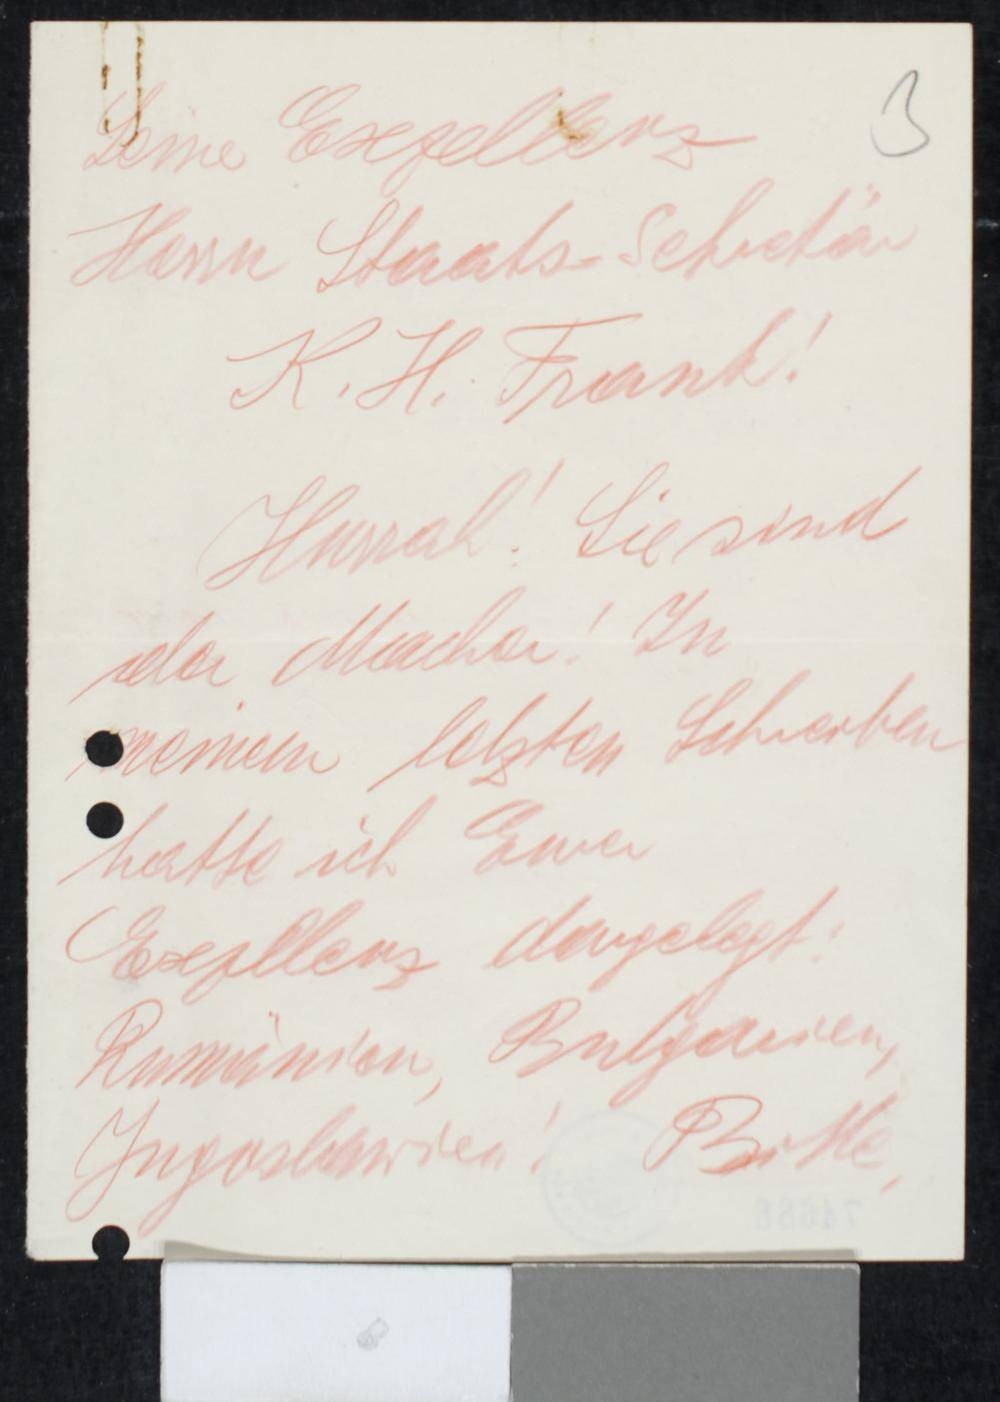 3
Seine Exzellenz
Herrn Staats-Sekretär
K. H. Frank!
Hurrah! Sie sind
der Macher! In
meinem letzten Schreiben
hatte ich Euer
Exzellenz dargelegt:
Rumänien, Bulgarien,
Jugoslawien! Bitte,
74688